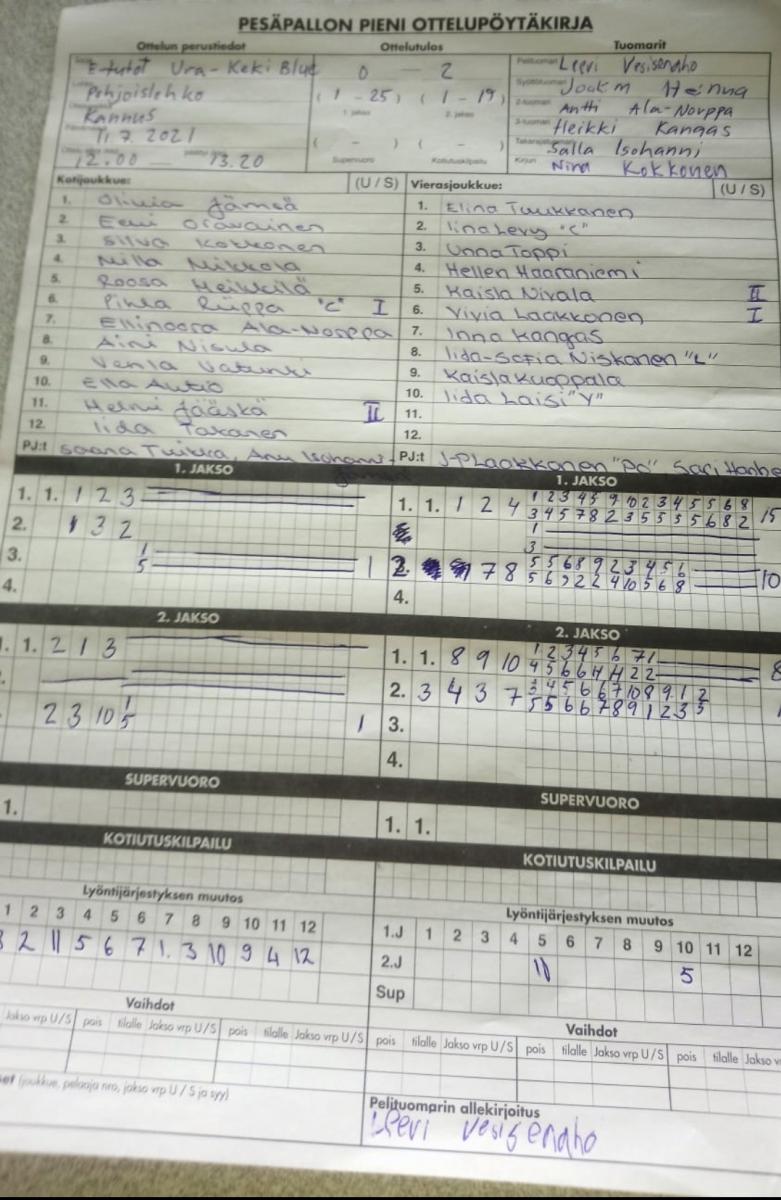 PESÄPALLON PIENI OTTELUPÖYTÄKIRJA
Ottelun perustiedot Ottelutulos Tuomarit
E-tytöt Ura - Keki Blue 0 2 Leevi Vesisenaho
Pohjoislehko (1 - 25) (1 - 19)
Kannus 1. jakso 2. jakso Antti Ala-Norppa
11.7.2021 ( - ) ( - ) Heikki Kangas
12.00 13.20 Supervuoro Kotiutuskilpailu Salla Isohanni
Kirjuri Nina Kokkonen
Kotijoukkue: (U/S) Vierasjoukkue: (U/S)
1. Olivia Jämsä 1. Elina Tuukkanen
2. Eevi Oravainen 2. Iina Levy "C"
3. Silva Kokkonen 3. Unna Toppi
4. Milla Mikkola 4. Hellen Haaraniemi
5. Roosa Heikkilä 5. Kaisla Nivala II
6. Pihla Riippa "C" I 6. Vivia Laakkonen I
7. Ellinoora Ala-Norppa 7. Inna Kangas
8. Aini Nisula 8. Iida-Sofia Niskanen "L"
9. Venla 9. Kaisla Kuoppala
10. Ella Autio 10. Iida Laisi "Y"
11. Helmi Jääskä II 11.
12. Iida Takanen 12.
PJ:t Saana Anu PJ:t J-P Laakkonen "PO" Sari
1. JAKSO 1. JAKSO
1. 1. 1 2 3 1. 1. 1 2 4 1 2 3 4 5 9 10 2 3 4 5 5 6 8 15
3 4 5 7 8 2 3 5 5 5 5 6 8 2
2. 1 3 2 1
3
3. 1 1 2. 7 8 5 5 6 8 9 2 3 4 5 6 10
5 5 6 9 2 2 4 10 5 6 8
4. 4.
2. JAKSO 2. JAKSO
1. 1. 2 1 3 1. 1. 8 9 10 1 2 3 4 5 6 7 1 8
4 5 6 6 11 11 2 2
2. 3 4 3 7 3 4 5 6 6 7 10 8 9 1 2
5 5 6 6 7 8 9 1 2 3 5
2 3 10 1 1 3.
5
4.
SUPERVUORO SUPERVUORO
1. 1. 1.
KOTIUTUSKILPAILU KOTIUTUSKILPAILU
Lyöntijärjestyksen muutos Lyöntijärjestyksen muutos
1 2 3 4 5 6 7 8 9 10 11 12 1.J 1 2 3 4 5 6 7 8 9 10 11 12
8 2 11 5 6 7 1. 3 10 9 4 12 2.J 11 5
Sup
Vaihdot Vaihdot
Jakso vrp U/S pois tilalle Jakso vrp U/S pois tilalle Jakso vrp U/S pois tilalle Jakso vrp U/S pois tilalle Jakso vrp U/S pois tilalle
(joukkue, pelaaja nro, jakso vrp U / S ja syy)
Pelituomarin allekirjoitus
Leevi Vesisenaho